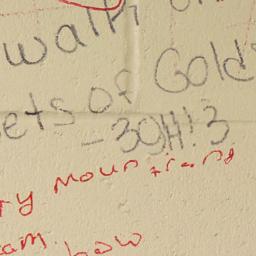 walk on
ets of Gold
-3OH!3
ry Moun
am. how